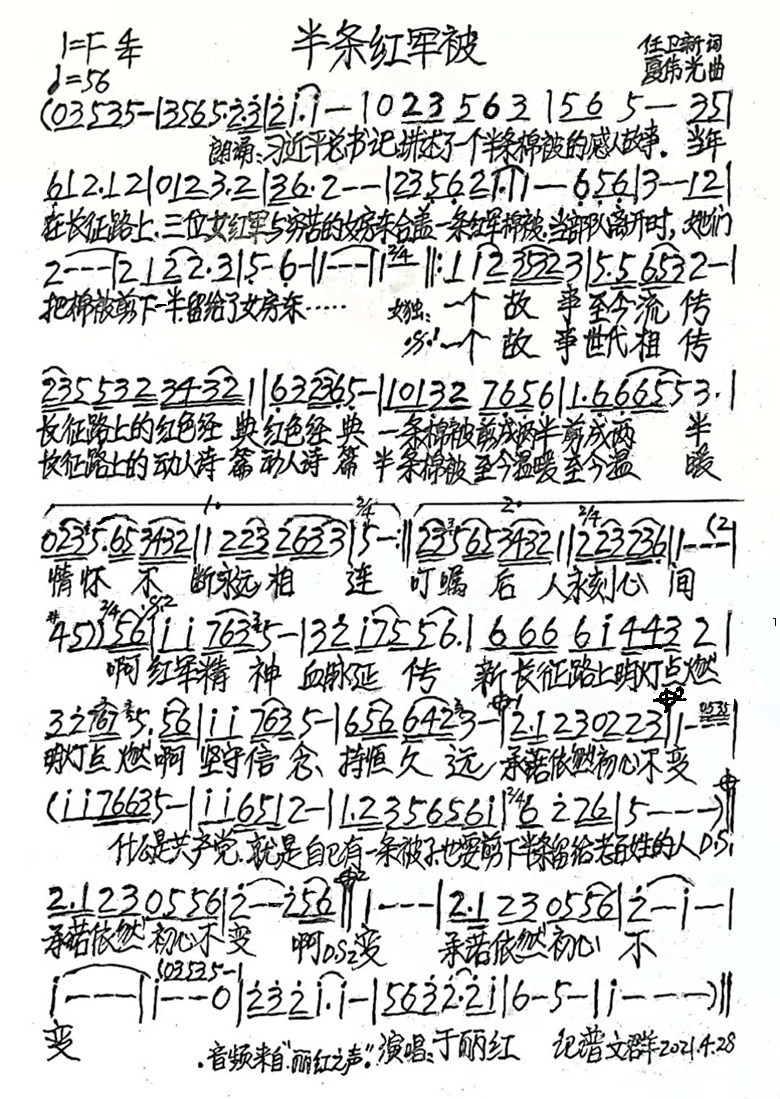 半条红军被
1=F 4/4
任卫新词
♩=56
夏伟光曲
(03535-|3565.2.3|2i.i-|0 2 3 5 6 3|5 6 5-35|
朗诵:习近平总书记讲述了一个半条棉被的感人故事。当年
612.12|0123.2|36.2--|235621.11-656|3-12|
在长征路上,三位女红军与穷苦的女房东合盖一条红军棉被,当部队离开时,她们
2---|2122.3|5-6-|1---|1 2/4 ‖:11235323|5.56532-|
把棉被剪下一半留给了女房东…… 女独:一个故事至今流传
一个故事世代相传
235532 34321|632365-|10132 7656|1.666553.|
长征路上的红色经典红色经典 一条棉被剪成两半剪成两半
长征路上的动人诗篇动人诗篇 半条棉被至今温暖至今温暖
1. 2/4 2. 2/4
0235.653432|1223 26333|5-:‖2356534321|2232361---(2
情怀不断永远相连 叮嘱后人永刻心间
#45)) 2/4 56|ii7635-|32i7556.|666 6i4432|
啊红军精神血脉延传 新长征路上明灯点燃
327675.56|ii7635-|6566423-|2.12302231--0535
明灯点燃啊坚守信念、持恒久远 承诺依然初心不变
(ii76635-|ii6512-|1.23565656i|2/4 6 226|5---)‖
什么是共产党,就是自己有一条被子也要剪下半条留给老百姓的人 D.S.1
2.1230556|2--256‖1---|2.1230556|2-i-|
承诺依然初心不变 啊D.S2变 承诺依然初心不
(03535-
i---|i--0|232i.i-|5632.2i|6-5-|i---)‖
变
.音频来自“丽红之声”. 演唱:于丽红 记谱文群2021.4.28